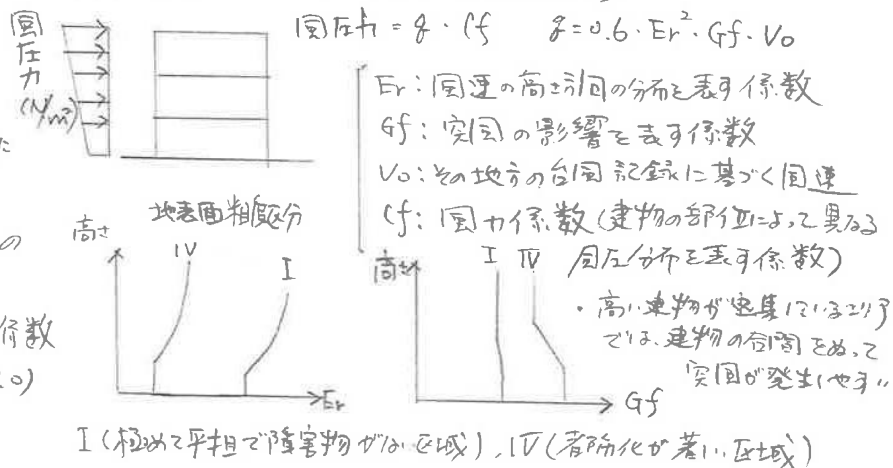 風圧力 = q・Cf　q=0.6・Er²・Gf・Vo
風圧力
(N/m²)
Er：風速の高さ方向の分布を表す係数
Gf：突風の影響を表す係数
Vo：その地方の台風記録に基づく風速
Cf：風力係数(建物の部位によって異なる
風圧分布を表す係数)
た
の
係数
地表面粗度区分
高さ
IV
I
Er
高さ
I IV
Gf
・高い建物が密集しているエリア
では、建物の合間をぬって
突風が発生しやすい
I (極めて平坦で障害物がない区域)、IV (都市化が著しい区域)